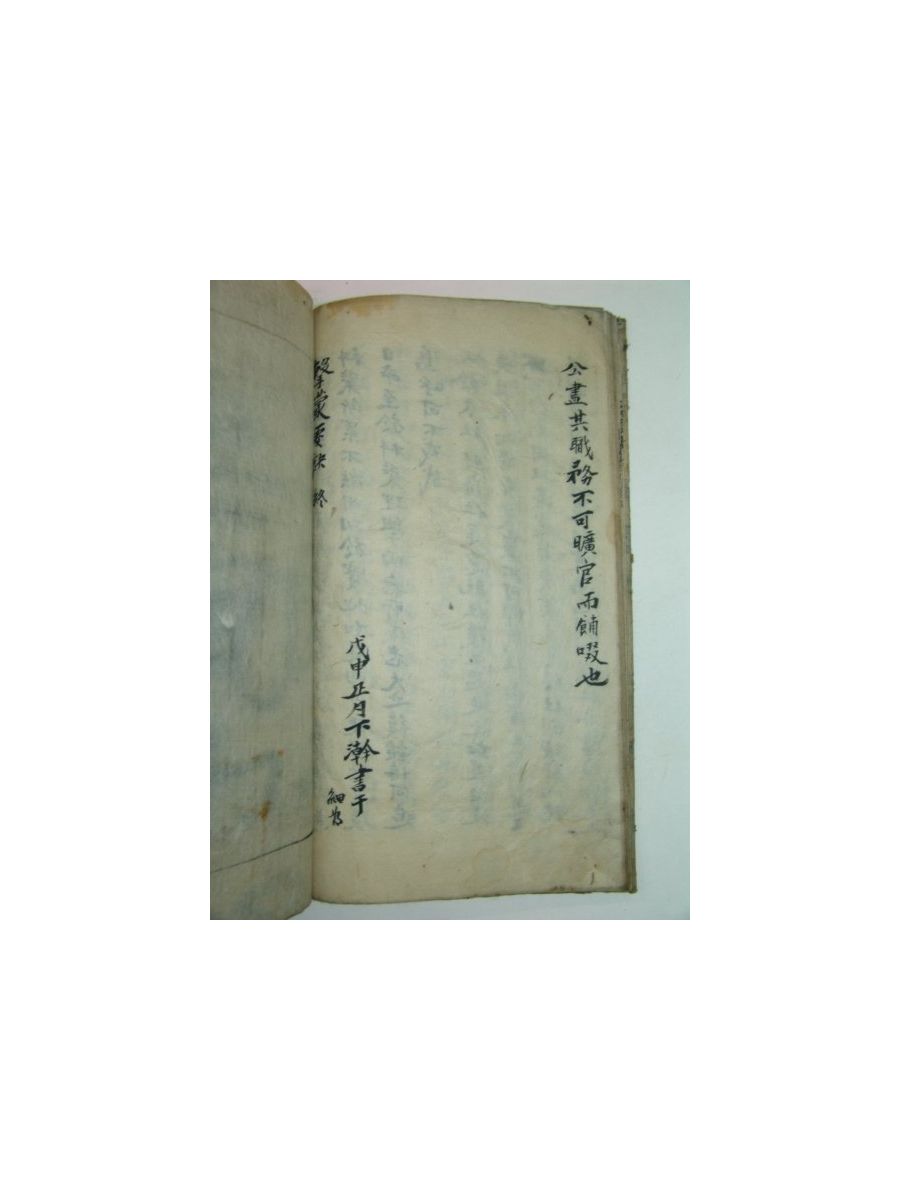 公盡其職務不可曠官而餔啜也
戊申正月下澣書于
擊蒙要訣 終